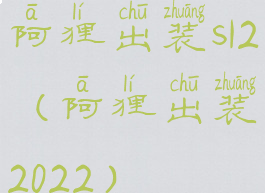 ā lí chū zhuāng
阿狸出装s12
ā lí chū zhuāng
(阿狸出装
2022)